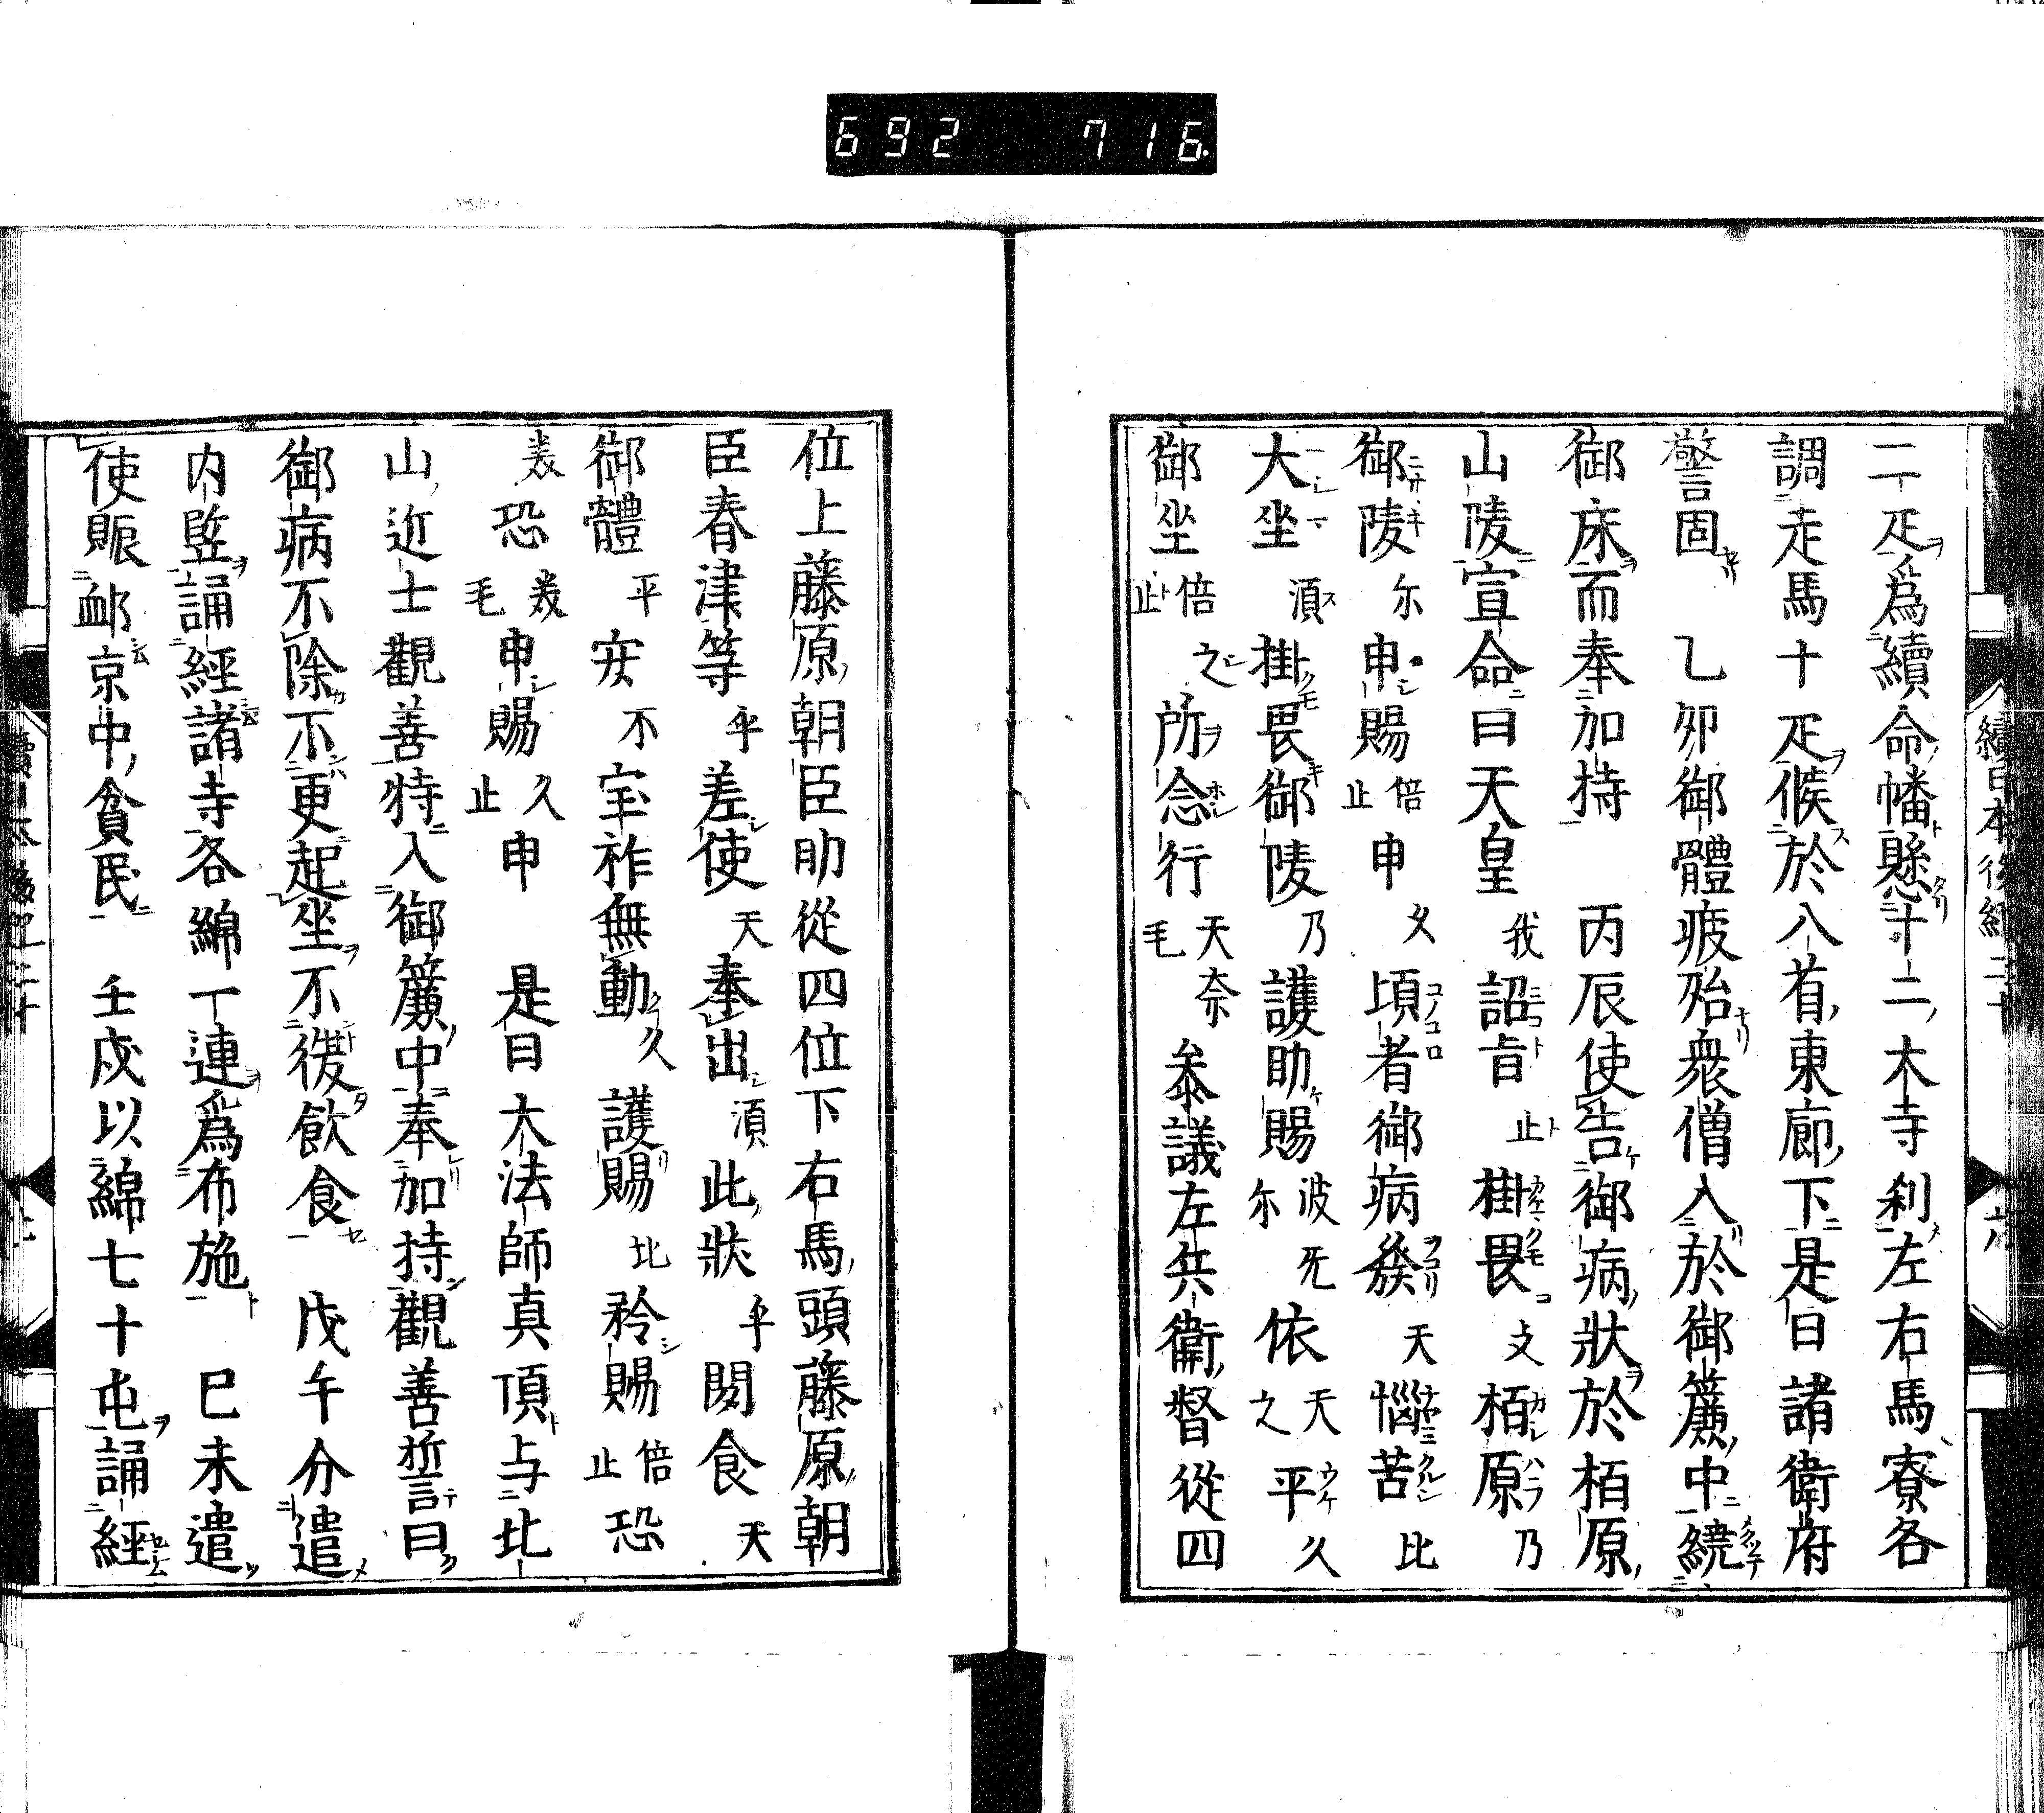 692 716.
續日本後紀二十 六
二疋爲續命幡懸十二大寺刹左右馬寮各
調走馬十疋候於八省東廊下是日諸衛府
警固 乙卯御體疲殆衆僧入於御簾中繞
御床而奉加持 丙辰使告御病狀於栢原
山陵宣命曰天皇我詔旨止掛畏支栢原乃
御陵尓申賜倍止申久頃者御病發天惱苦比
大坐須掛畏御陵乃護助賜波牟尓依天之平久
御坐倍止之所念行天毛奈叅議左兵衛督從四
位上藤原朝臣助從四位下右馬頭藤原朝
臣春津等乎差使天奉出須此狀乎聞食天
御體平安不宝祚無動久護賜比矜賜倍止恐
美恐美毛申賜久止申 是日大法師真頂与比
山近士觀善特入御簾中奉加持觀善誓曰
御病不除不更起坐不復飲食 戊午分遣
内監誦經諸寺各綿一連爲布施 巳未遣
使賑䘏京中貧民 壬戌以綿七十屯誦經